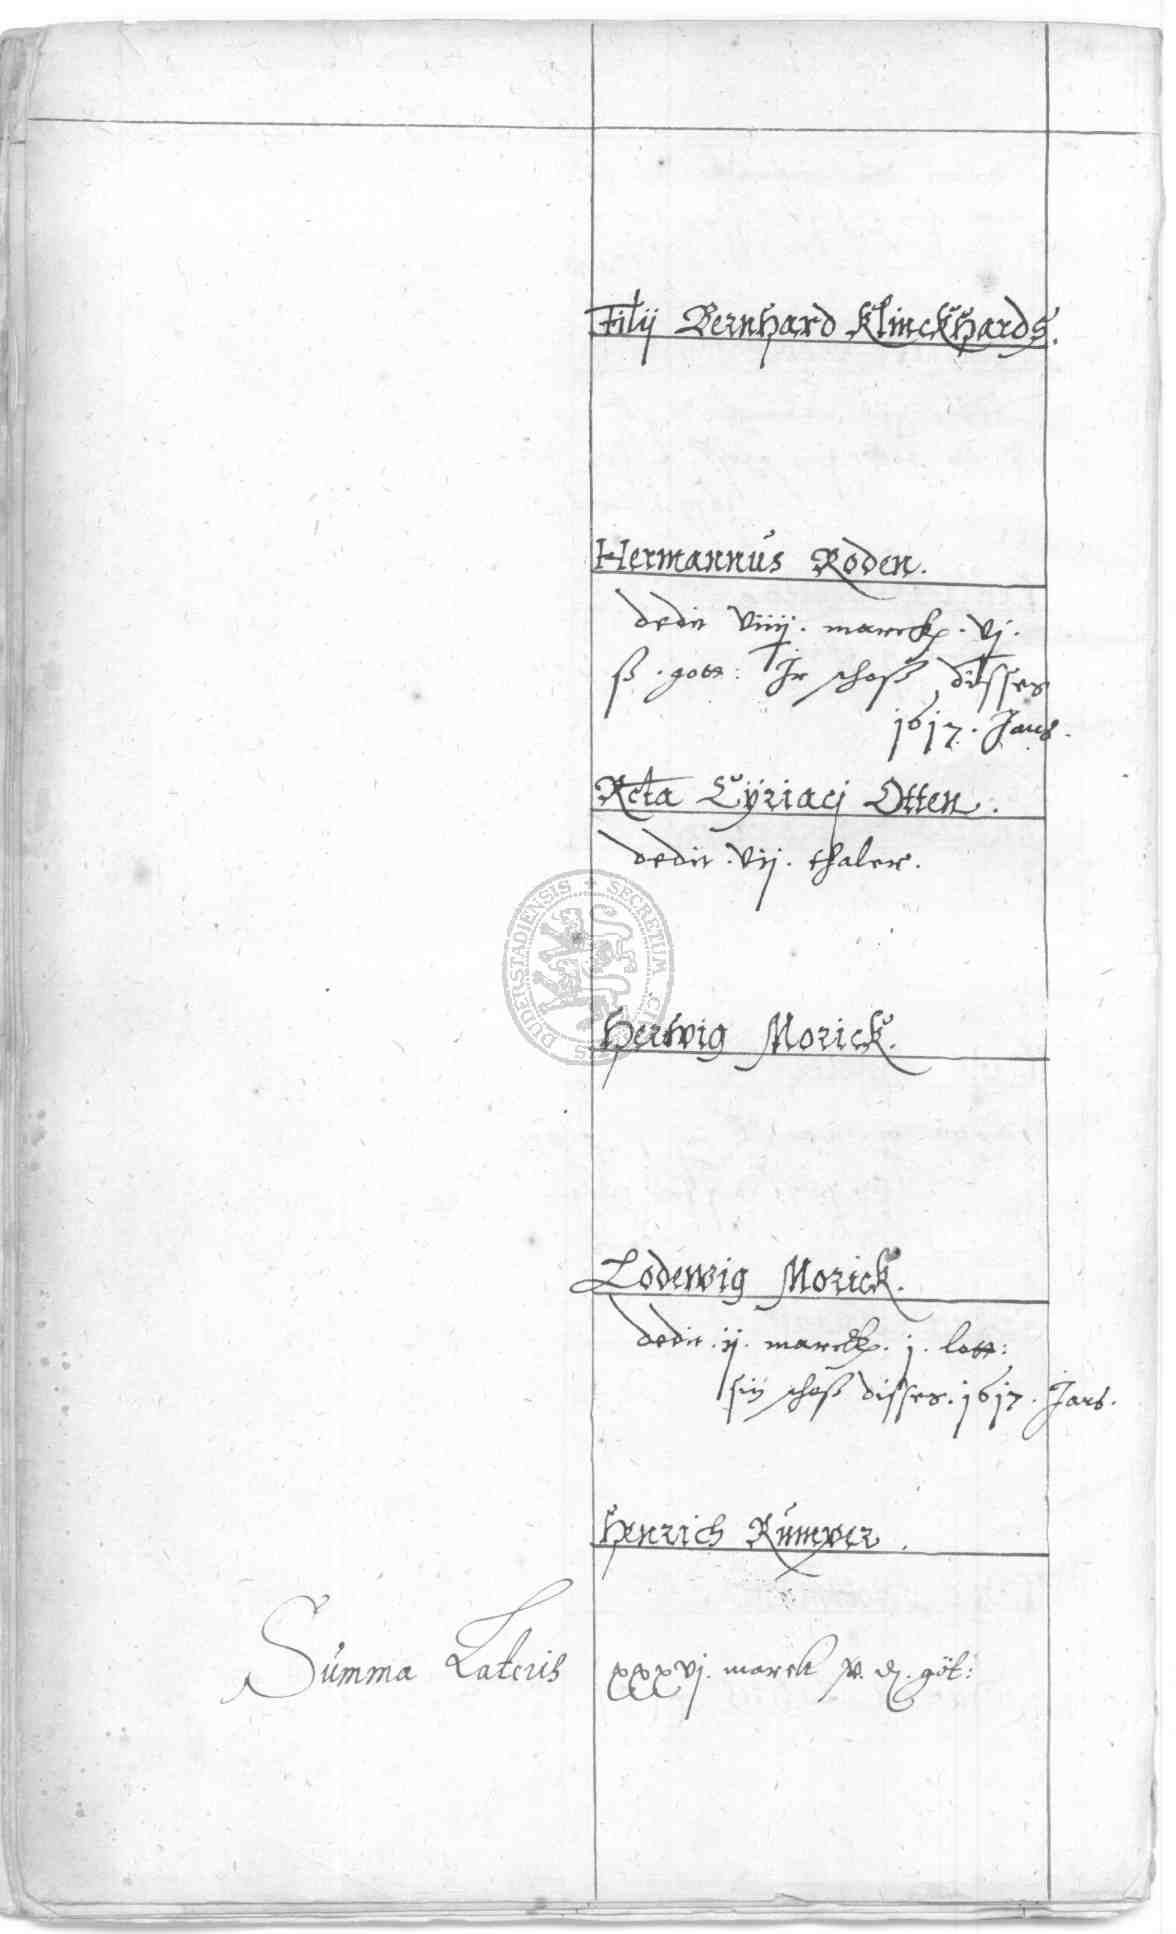 Filij Bernhard Klinckhards.
Hermannus Roden.
dedit viiij. marck. vj.
ß. gott: Ir schoß disses
1617. Jars.
Rcta Cÿriacj Otten.
dedit. vij. thaler.
SECRETUM CI
S DUDERSTADIENSIS
Hertwig Morick.
Lodewig Morick.
dedit. ij. marck. j. lott:
sin schoß disses. 1617. Jars.
Henrich Rümper.
Summa Lateris xxxvj. marck göt: